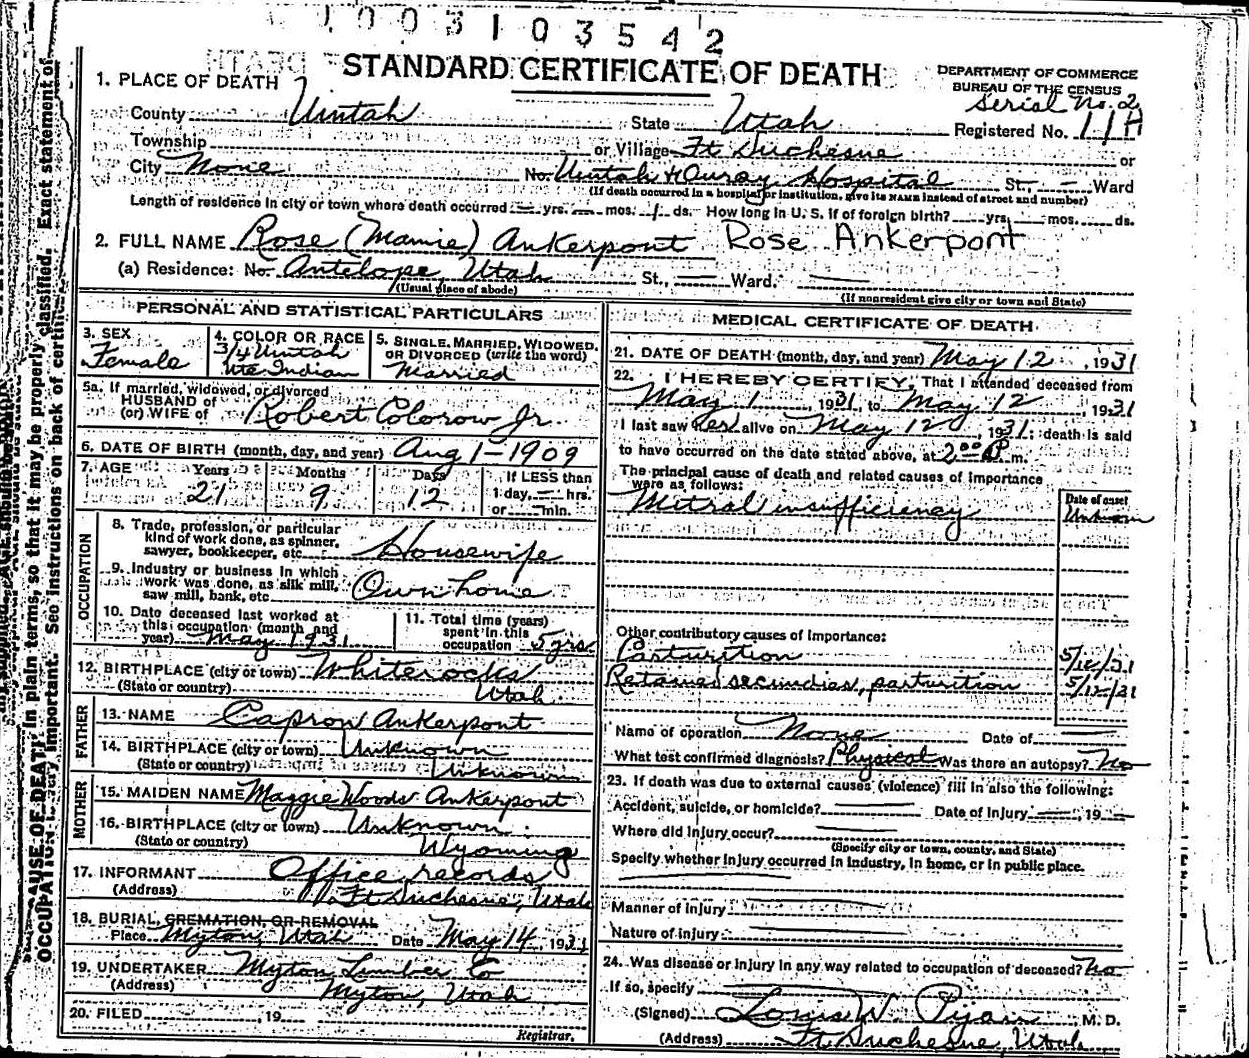 1003103542
STANDARD CERTIFICATE OF DEATH
DEPARTMENT OF COMMERCE
BUREAU OF THE CENSUS
1. PLACE OF DEATH
Serial No. 2
County Uintah State Utah Registered No. 11A
Township or Village Ft Duchesne or
City None No. Uintah & Ouray Hospital St., — Ward
(If death occurred in a hospital or institution, give its NAME instead of street and number)
Length of residence in city or town where death occurred — yrs. — mos. 1 ds. How long in U. S. if of foreign birth? yrs. mos. ds.
2. FULL NAME Rose (Mamie) Ankerpont Rose Ankerpont
(a) Residence: No. Antelope, Utah St., Ward.
(Usual place of abode) (If nonresident give city or town and State)
PERSONAL AND STATISTICAL PARTICULARS
3. SEX Female
4. COLOR OR RACE 3/4 Uintah Ute Indian
5. SINGLE, MARRIED, WIDOWED, OR DIVORCED (write the word) Married
5a. If married, widowed, or divorced
HUSBAND of
(or) WIFE of Robert Colorow Jr.
6. DATE OF BIRTH (month, day, and year) Aug 1 - 1909
7. AGE Years Months Days If LESS than
21 9 12 1 day, — hrs.
or — min.
OCCUPATION
8. Trade, profession, or particular
kind of work done, as spinner,
sawyer, bookkeeper, etc. Housewife
9. Industry or business in which
work was done, as silk mill,
saw mill, bank, etc. Own home
10. Date deceased last worked at
this occupation (month and
year) May 1931
11. Total time (years)
spent in this
occupation 5 yrs.
12. BIRTHPLACE (city or town) Whiterocks
(State or country) Utah
FATHER
13. NAME Capron Ankerpont
14. BIRTHPLACE (city or town) Unknown
(State or country) Unknown
MOTHER
15. MAIDEN NAME Maggie Woods Ankerpont
16. BIRTHPLACE (city or town) Unknown
(State or country) Wyoming
17. INFORMANT Office records
(Address) Ft Duchesne, Utah
18. BURIAL, CREMATION, OR REMOVAL
Place Myton, Utah Date May 14, 1931
19. UNDERTAKER Myton Lumber Co
(Address) Myton, Utah
20. FILED , 19
Registrar.
MEDICAL CERTIFICATE OF DEATH
21. DATE OF DEATH (month, day, and year) May 12, 1931
22. I HEREBY CERTIFY, That I attended deceased from
May 1, 1931, to May 12, 1931
I last saw her alive on May 12, 1931; death is said
to have occurred on the date stated above, at 2:00 P m.
The principal cause of death and related causes of importance
were as follows:
Date of onset
Mitral insufficiency Unknown
Other contributory causes of importance:
Parturition 5/12/31
Retained secundies, parturition 5/12/31
Name of operation None Date of
What test confirmed diagnosis? Physical Was there an autopsy? No
23. If death was due to external causes (violence) fill in also the following:
Accident, suicide, or homicide? Date of injury , 19
Where did injury occur?
(Specify city or town, county, and State)
Specify whether injury occurred in industry, in home, or in public place.
Manner of injury
Nature of injury
24. Was disease or injury in any way related to occupation of deceased? No
If so, specify
(Signed) Louis W. , M. D.
(Address) Ft Duchesne, Utah
in plain terms, so that it may be properly classified. Exact statement of
See instructions on back of certificate